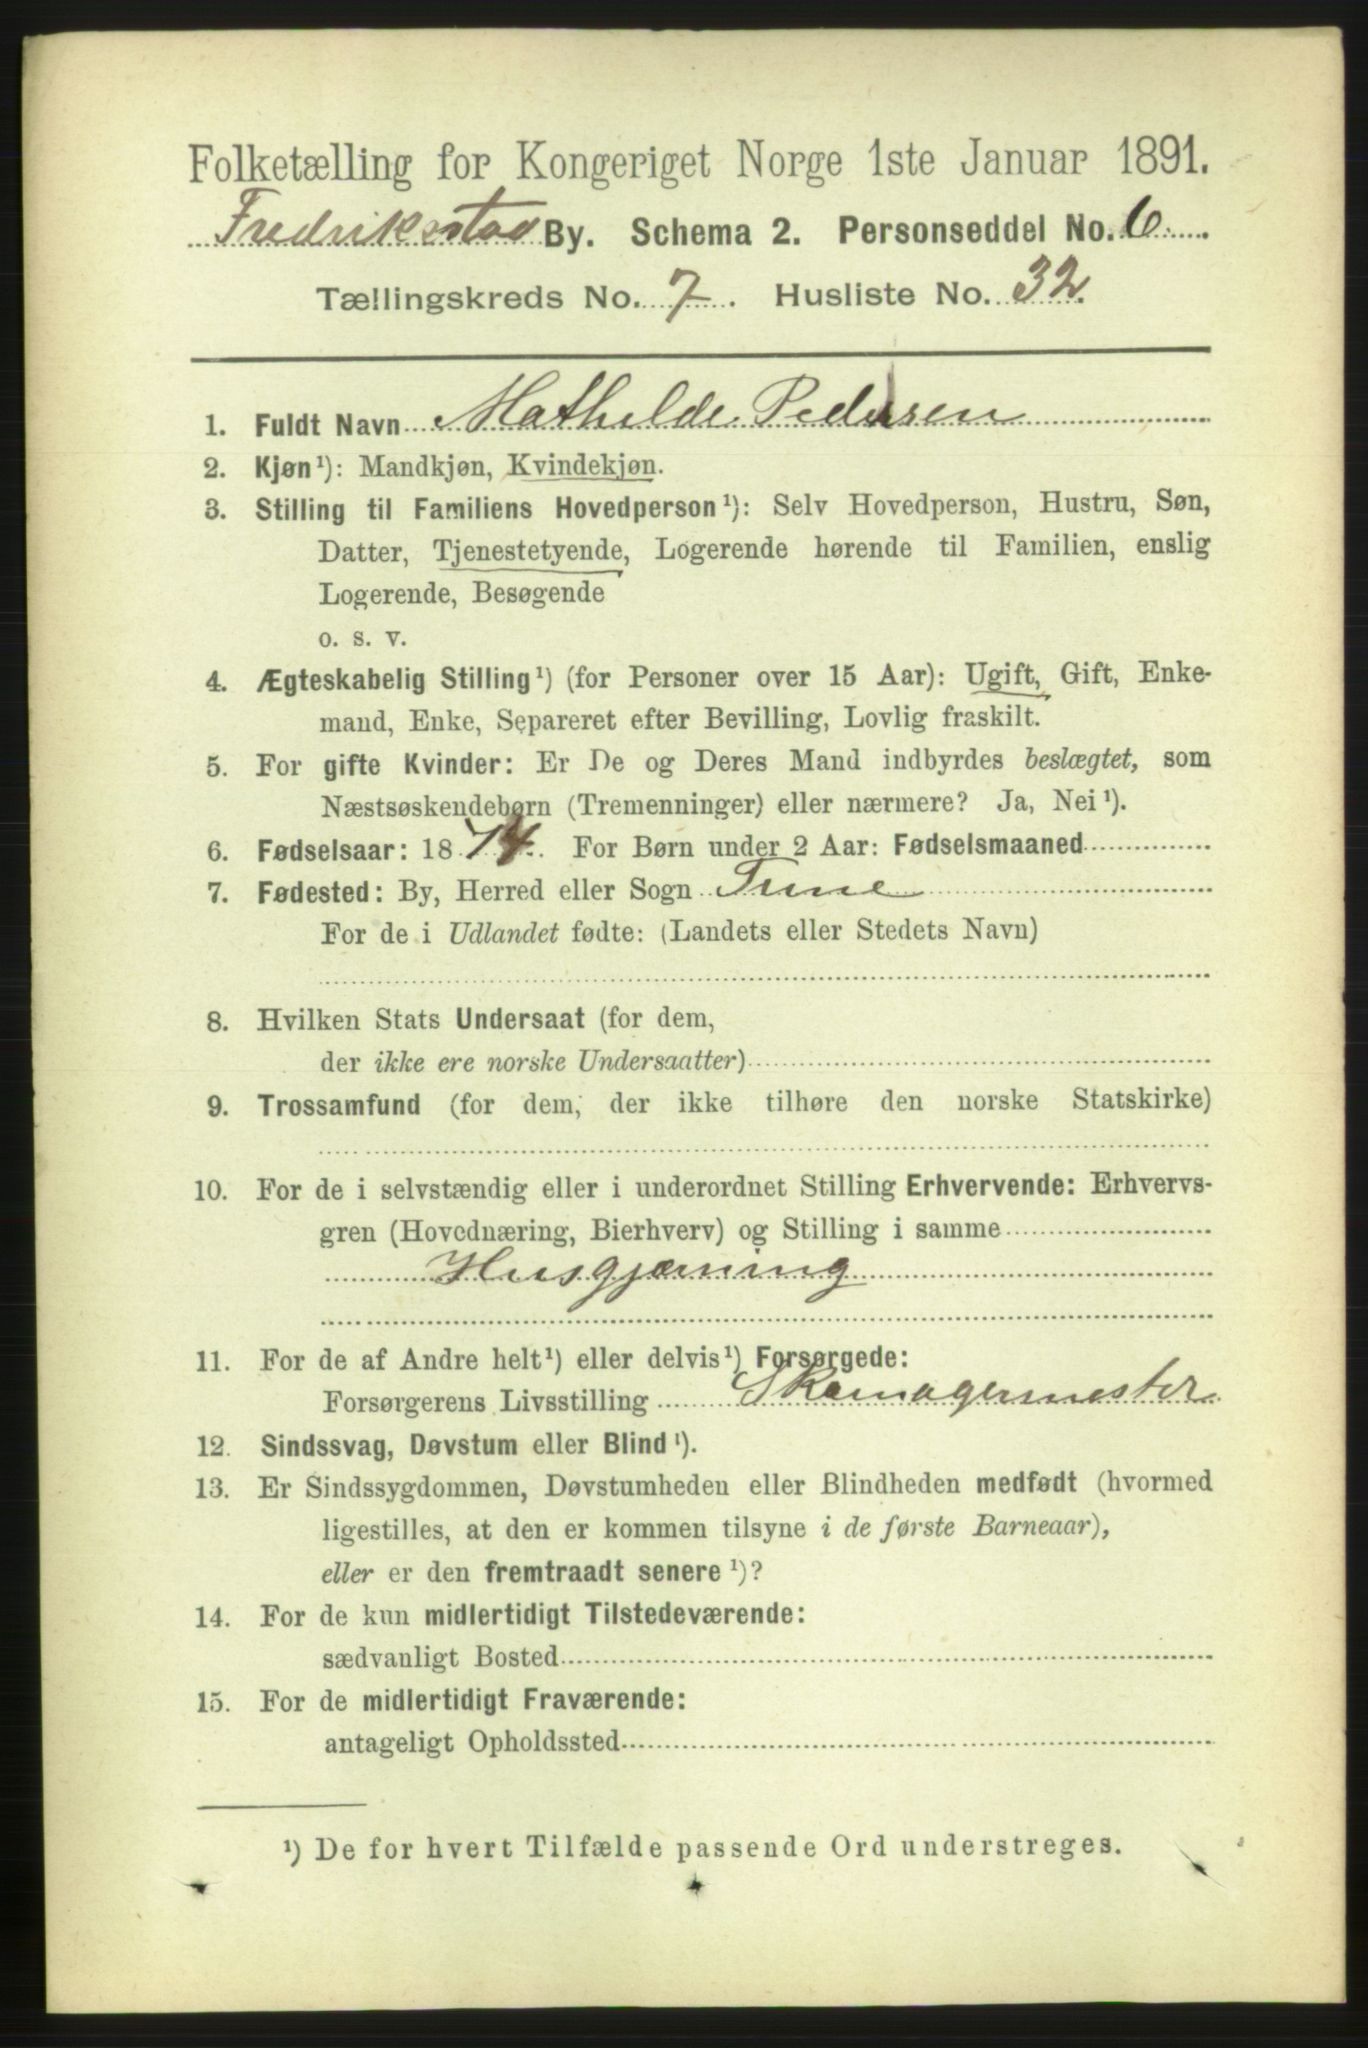 Folketælling for Kongeriget Norge 1ste Januar 1891.
Fredriksstad By. Schema 2. Personseddel No. 6
Tællingskreds No. 7. Husliste No. 32.
1. Fuldt Navn Mathilde Pedersen
2. Kjøn¹): Mandkjøn, Kvindekjøn.
3. Stilling til Familiens Hovedperson¹): Selv Hovedperson, Hustru, Søn,
Datter, Tjenestetyende, Logerende hørende til Familien, enslig
Logerende, Besøgende
o. s. v.
4. Ægteskabelig Stilling¹) (for Personer over 15 Aar): Ugift, Gift, Enke-
mand, Enke, Separeret efter Bevilling, Lovlig fraskilt.
5. For gifte Kvinder: Er De og Deres Mand indbyrdes beslægtet, som
Næstsøskendebørn (Tremenninger) eller nærmere? Ja, Nei¹).
6. Fødselsaar: 1874. For Børn under 2 Aar: Fødselsmaaned
7. Fødested: By, Herred eller Sogn Tune
For de i Udlandet fødte: (Landets eller Stedets Navn)
8. Hvilken Stats Undersaat (for dem,
der ikke ere norske Undersaatter)
9. Trossamfund (for dem, der ikke tilhøre den norske Statskirke)
10. For de i selvstændig eller i underordnet Stilling Erhvervende: Erhvervs-
gren (Hovednæring, Bierhverv) og Stilling i samme
Husgjærning
11. For de af Andre helt¹) eller delvis¹) Forsørgede:
Forsørgerens Livsstilling Skomagermester
12. Sindssvag, Døvstum eller Blind¹).
13. Er Sindssygdommen, Døvstumheden eller Blindheden medfødt (hvormed
ligestilles, at den er kommen tilsyne i de første Barneaar),
eller er den fremtraadt senere¹)?
14. For de kun midlertidigt Tilstedeværende:
sædvanligt Bosted
15. For de midlertidigt Fraværende:
antageligt Opholdssted
¹) De for hvert Tilfælde passende Ord understreges.